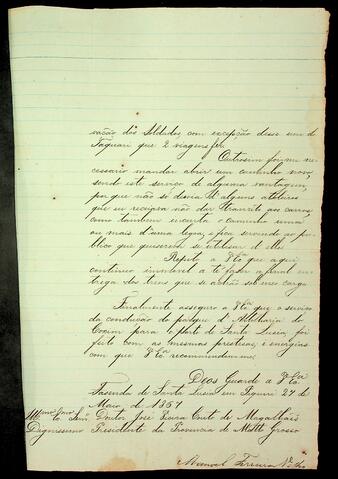 vação dos Soldados, com excepção desse um do
Taquari que 2 viagens fez.
Outrosim foi me ne-
cessario mandar abrir um caminho novo
sendo este serviço de alguma vantagem,
por que não só livra de alguns
que eu receiava não dar tranzito aos carros
como tambem encurta o caminho uma
ou mais d'uma legoa, e fica servindo ao pu-
blico que quiserem se utilisar d'elle
Repito a V.Ex.ª que aqui
continuo immovel a te fazer a final en-
trega dos trens que se achão sob meo cargo
Finalmente asseguro a V.Ex.ª que o serviço
da condução do parque d'Artilharia do
Coxim para o porto de Santa Luzia, foi
feito com as mesmas prestesas, e energias
com que V.Ex.ª recommendou-me.
Deos Guarde a V.Ex.ª
Fazenda de Santa Luzia em Piquiri 27 de
Maio de 1867
Illmo. Exmo. Senr. Doutor José Vieira Couto de Magalhães
Dignissimo Presidente da Provincia de Matto Grosso
Manoel Ferreira